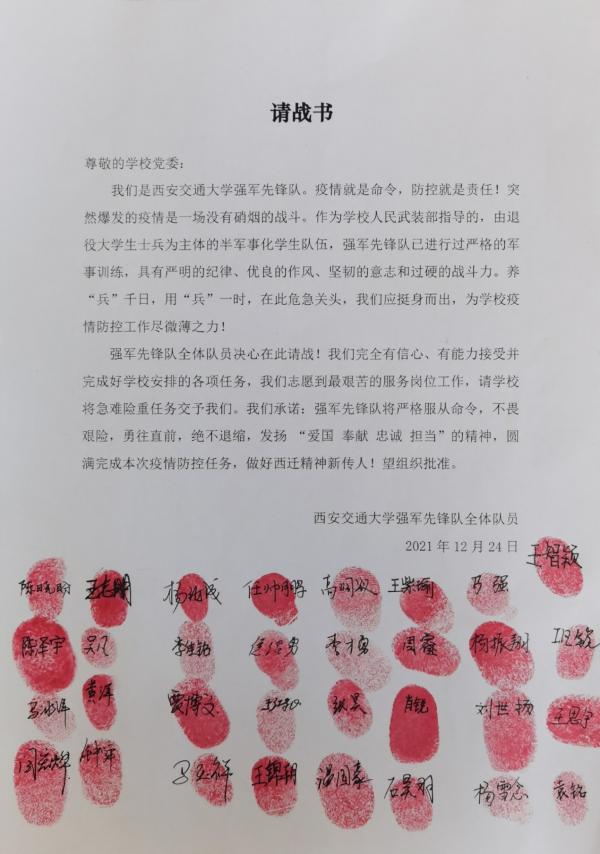 请战书
尊敬的学校党委：
我们是西安交通大学强军先锋队。疫情就是命令，防控就是责任！突
然爆发的疫情是一场没有硝烟的战斗。作为学校人民武装部指导的，由退
役大学生士兵为主体的半军事化学生队伍，强军先锋队已进行过严格的军
事训练，具有严明的纪律、优良的作风、坚韧的意志和过硬的战斗力。养
“兵”千日，用“兵”一时，在此危急关头，我们应挺身而出，为学校疫
情防控工作尽微薄之力！
强军先锋队全体队员决心在此请战！我们完全有信心、有能力接受并
完成好学校安排的各项任务，我们志愿到最艰苦的服务岗位工作，请学校
将急难险重任务交予我们。我们承诺：强军先锋队将严格服从命令，不畏
艰险，勇往直前，绝不退缩，发扬 “爱国 奉献 忠诚 担当”的精神，圆
满完成本次疫情防控任务，做好西迁精神新传人！望组织批准。
西安交通大学强军先锋队全体队员
2021 年 12 月 24 日
王智颖
陈泽宇 吴凡 周睿 杨振翔
黄洋 肖锐 刘世扬
石昊羽 杨雪念 袁铭